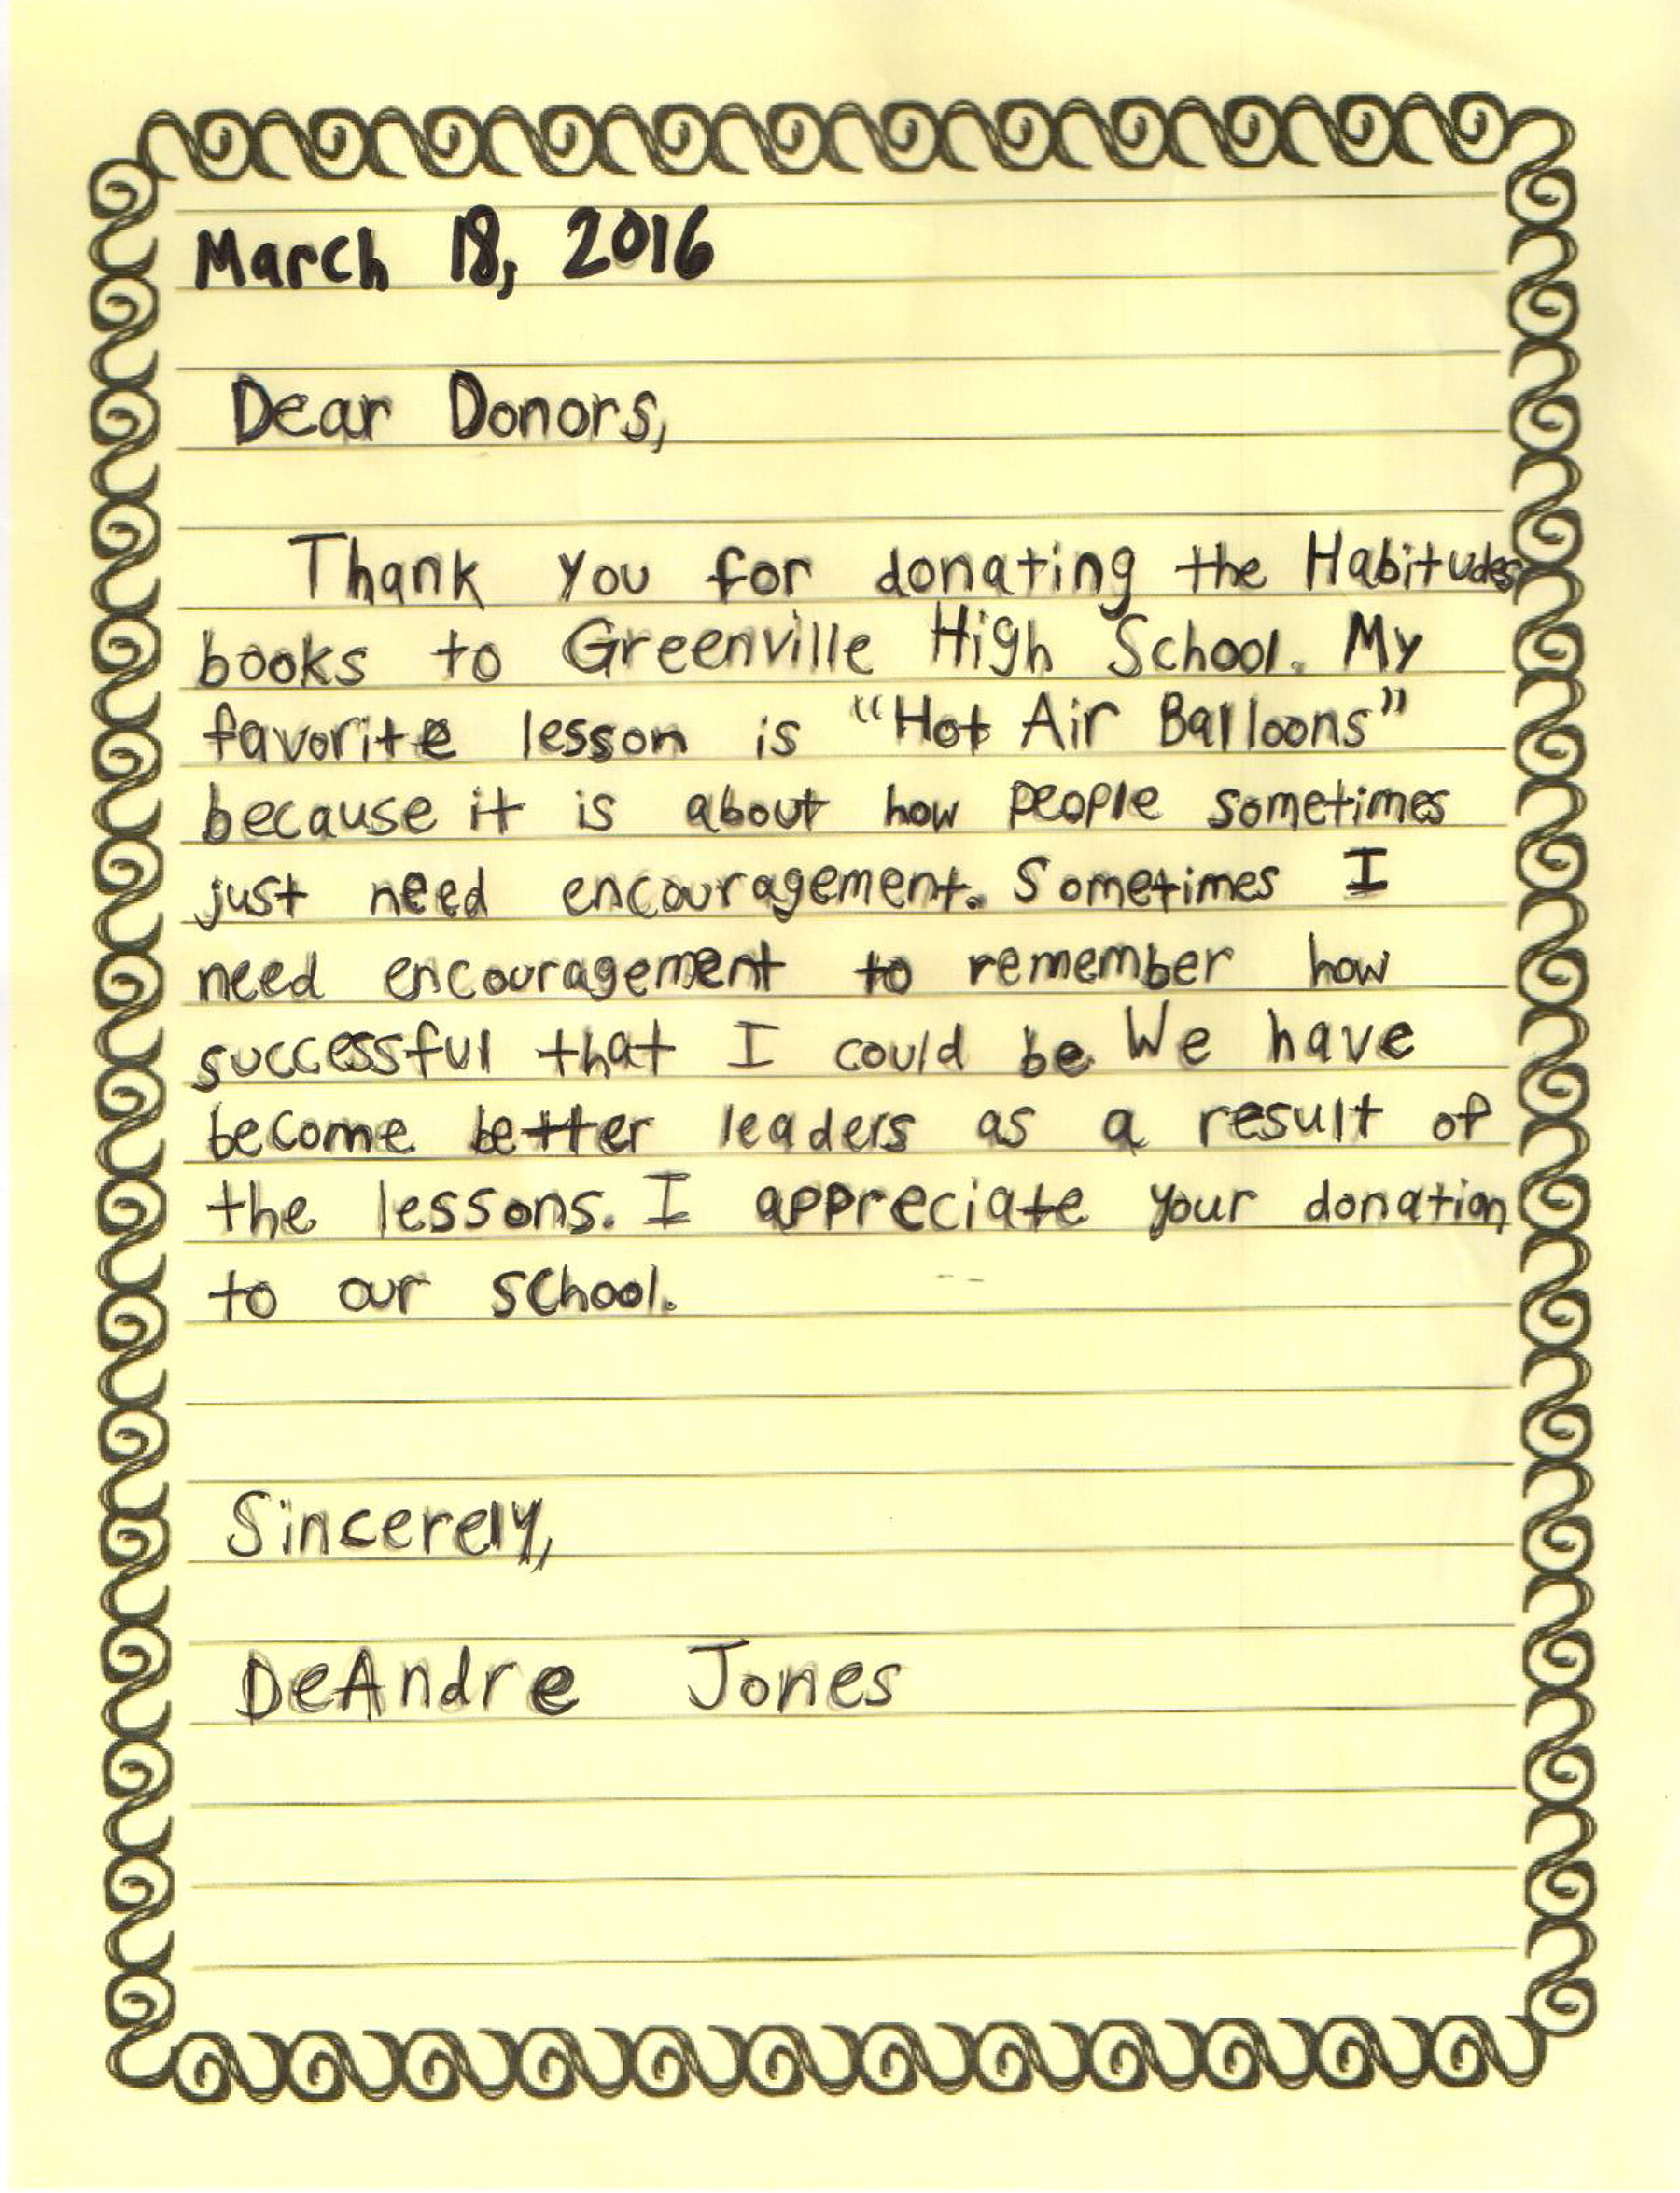 March 18, 2016
Dear Donors,
Thank you for donating the Habitudes
books to Greenville High School. My
favorite lesson is "Hot Air Balloons"
because it is about how people sometimes
just need encouragement. Sometimes I
need encouragement to remember how
successful that I could be. We have
become better leaders as a result of
the lessons. I appreciate your donation
to our school.
Sincerely,
DeAndre Jones